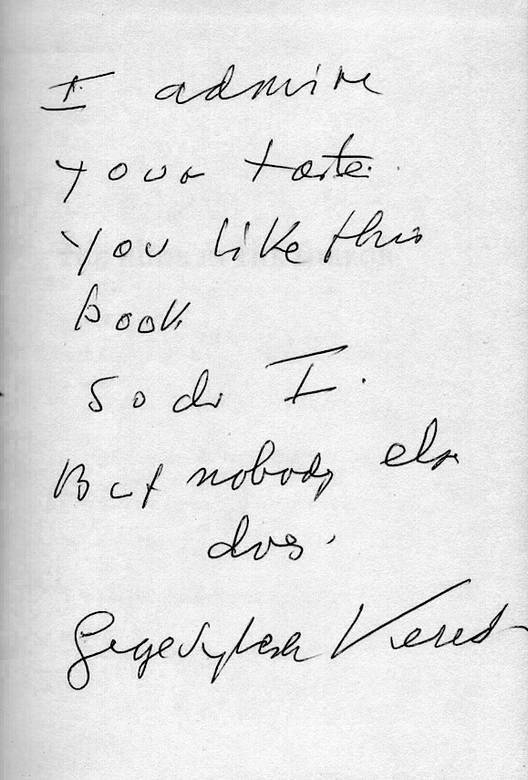 I admire
your taste.
You like this
book
So do I.
But nobody else
does.
George Sylvester Viereck